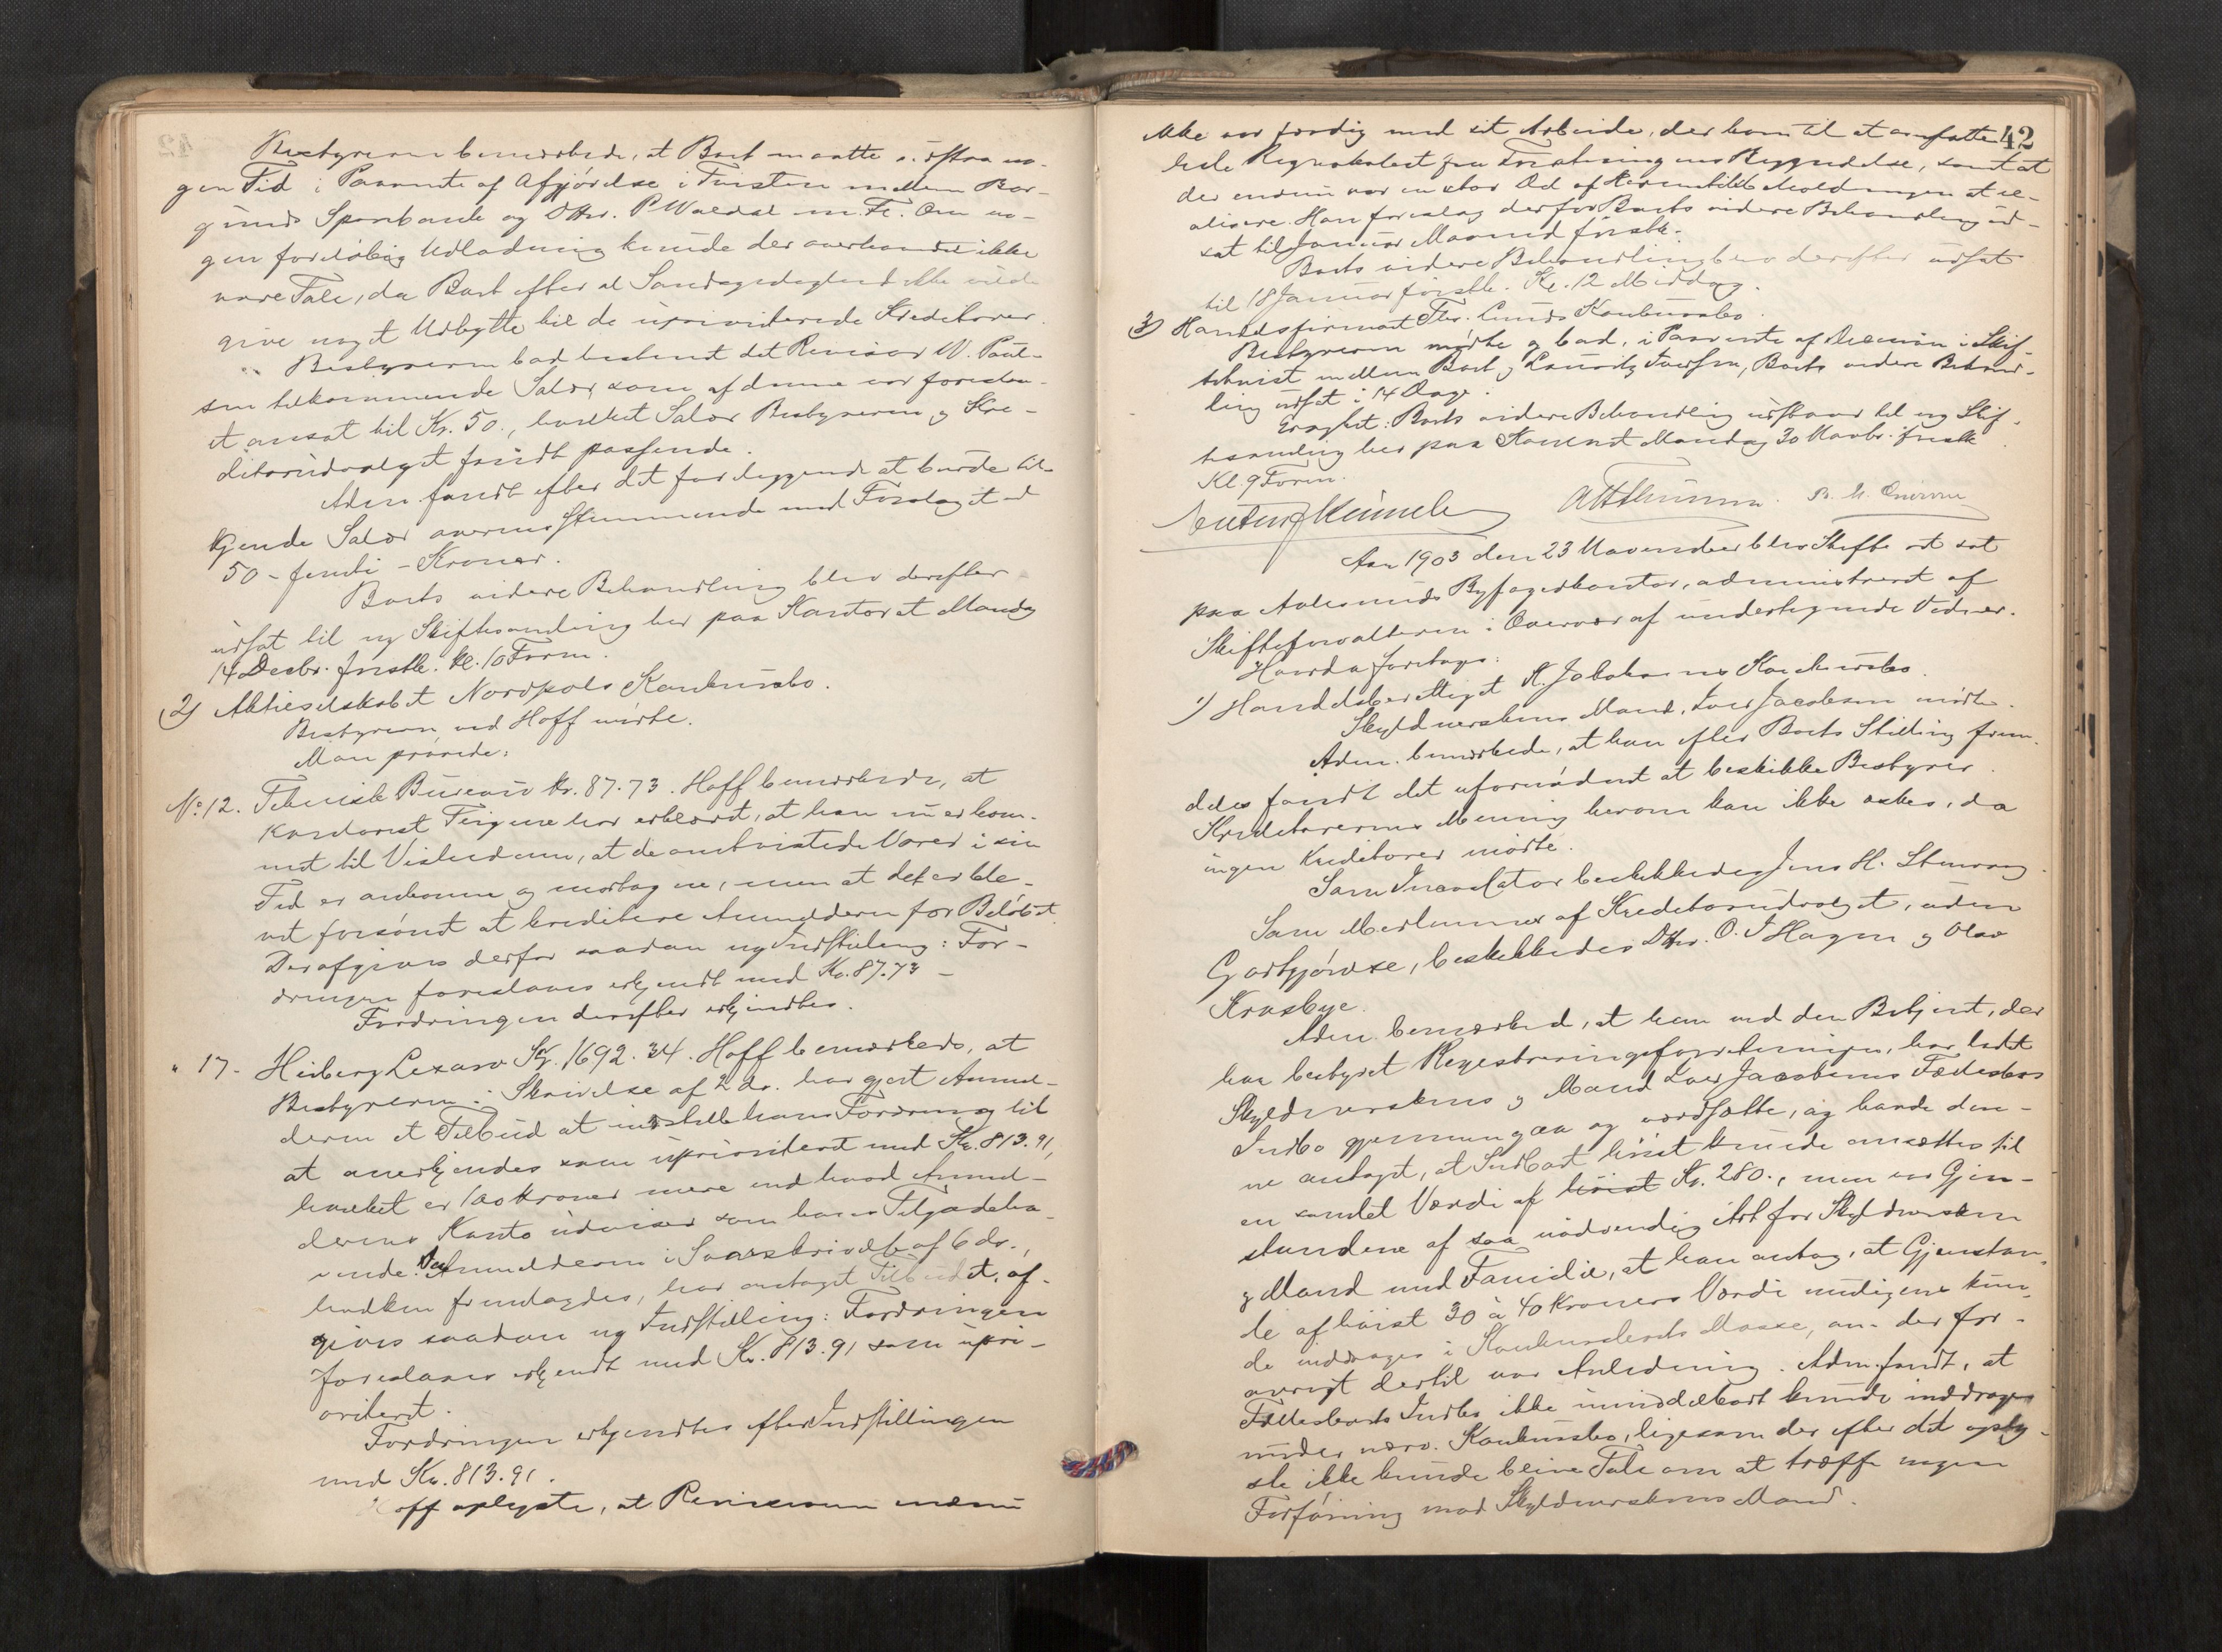 Bestyreren bemærkede, at Boet maatte udstaa no-
gen Tid i Paavente af Afgjörelse i Tvisten mellem Bor-
gunds Sparebank og DHrr. P. Waldal m. Fl. Om no-
gen foreløbig Udlodning kunde der overhovedet ikke
være Tale, da Boet efter al Sandsynlighed ikke vilde
give noget Udbytte til de uprioriterede Kreditorer.
Bestyreren bad bestemt det Revisor W. Paul-
sen tilkommende Salær, som af denne var foreslaa-
et ansat til Kr. 50., hvilket Salær Bestyreren og Kre-
ditorudvalget fandt passende.
Adm. fandt efter det foreliggende at burde til-
kjende Salær overensstemmende med Forslaget
50 - femti - Kroner.
Boets videre Behandling blev derefter
udsat til ny Skiftesamling her paa Kontoret Mandag
14 Decbr. førstk. Kl. 10 Form.
2) Aktieselskabet Nordpols Konkursbo.
Bestyreren ved Hoff mødte.
Man prøvede:
No. 12. Teknisk Bureau Kr. 87.73. Hoff bemærkede, at
Kontorist har erklæret, at han nu er kom-
met til Vished om, at de omtvistede Varer i sin
Tid er ankomne og modtagne, men at det er ble-
vet forsømt at kreditere Anmelderen for Beløbet.
Der afgives derfor saadan ny Indstilling: For-
dringen foreslaaes erkjendt med Kr. 87.73 -
Fordringen derefter erkjendtes.
" 17. Heiberg Lexow Kr. 1692.34. Hoff bemærkede, at
Bestyreren i Skrivelse af 2 ds. har gjort Anmel-
deren et Tilbud at indstille hans Fordring til
at anerkjendes som uprioriteret med Kr. 813.91,
hvilket er 100 Kroner mere end hvad Anmel-
derens Konto udviser som hans Tilgodeha-
vende. Da Anmelderen i Svarskrivelse af 6 ds.,
hvilken fremlagdes, har antaget Tilbudet, af-
gives saadan ny Indstilling: Fordringen
foreslaaes erkjendt med Kr. 813.91 som upri-
oriteret.
Fordringen erkjendtes efter Indstillingen
med Kr. 813.91.
Hoff oplyste, at Revisoren endnu
42
ikke var færdig med sit Arbeide, der kom til at omfatte
hele Regnskabet fra Forretningens Begyndelse, samt at
der endnu var en stor Del af at re-
alisere. Han foreslog derfor Boets videre Behandling ud-
sat til Januar Maaned førstk.
Boets videre Behandling blev derefter udsat
til 18 Januar førstk. Kl. 12 Middag.
3) Handelsfirmaet Thv. Lunds Konkursbo.
Bestyreren mødte og bad, i Paavente af Decision i Skif-
tetvist mellem Boet og Lauritz Iversen, Boets videre Behand-
ling udsat i 14 Dage.
Eragtet: Boets videre Behandling udstaar til ny Skif-
tesamling her paa Kontoret Mandag 30 Novbr. førstk
Kl. 9 Form.
Aar 1903 den 23 November blev Skifteret sat
paa Aalesunds Byfogedkontor, administreret af
Skifteforvalteren i Overvær af undertegnede Vidner.
Hvorda foretoges:
1) Handelsberettiget K. Jakobsens Konkursbo.
Skyldnerskens Mand, Iver Jacobsen mødte.
Adm. bemærkede, at han efter Boets Stilling frem-
deles fandt det ufornødent at beskikke Bestyrer.
Kreditorernes Mening herom kan ikke æskes, da
ingen Kreditorer mødte.
Som Inkassator beskikkedes Jens H. Stenvaag.
Som Medlemmer af Kreditorudvalget, uden
Godtgjørelse, beskikkedes DHrr. O. J. Hagen og Olav
Krosbye.
Adm. bemærked, at han ved den Betjent, der
har bestyret Registreringsforretningen, har ladet
Skyldnerskens og Mand Iver Jacobsens Fællesbos
Indbo gjennemgaa og værdsætte, og havde den-
ne antaget, at Indboet höist kunde ansættes til
en samlet Værdi af höist Kr. 280., men var Gjen-
standene af saa nødvendig Art for Skyldnersken
og Mand med Familie, at han antog, at Gjenstan-
de af höist 30 à 40 Kroners Værdi muligens kun-
de inddrages i Konkursboets Masse, om der for-
øvrigt dertil var Anledning. Adm. fandt, at
Fællesboets Indbo ikke umiddelbart kunde inddrages
under nærv. Konkursbo, ligesom der efter det oply-
ste ikke kunde blive Tale om at træffe nogen
Forføining mod Skyldnerskens Mand.